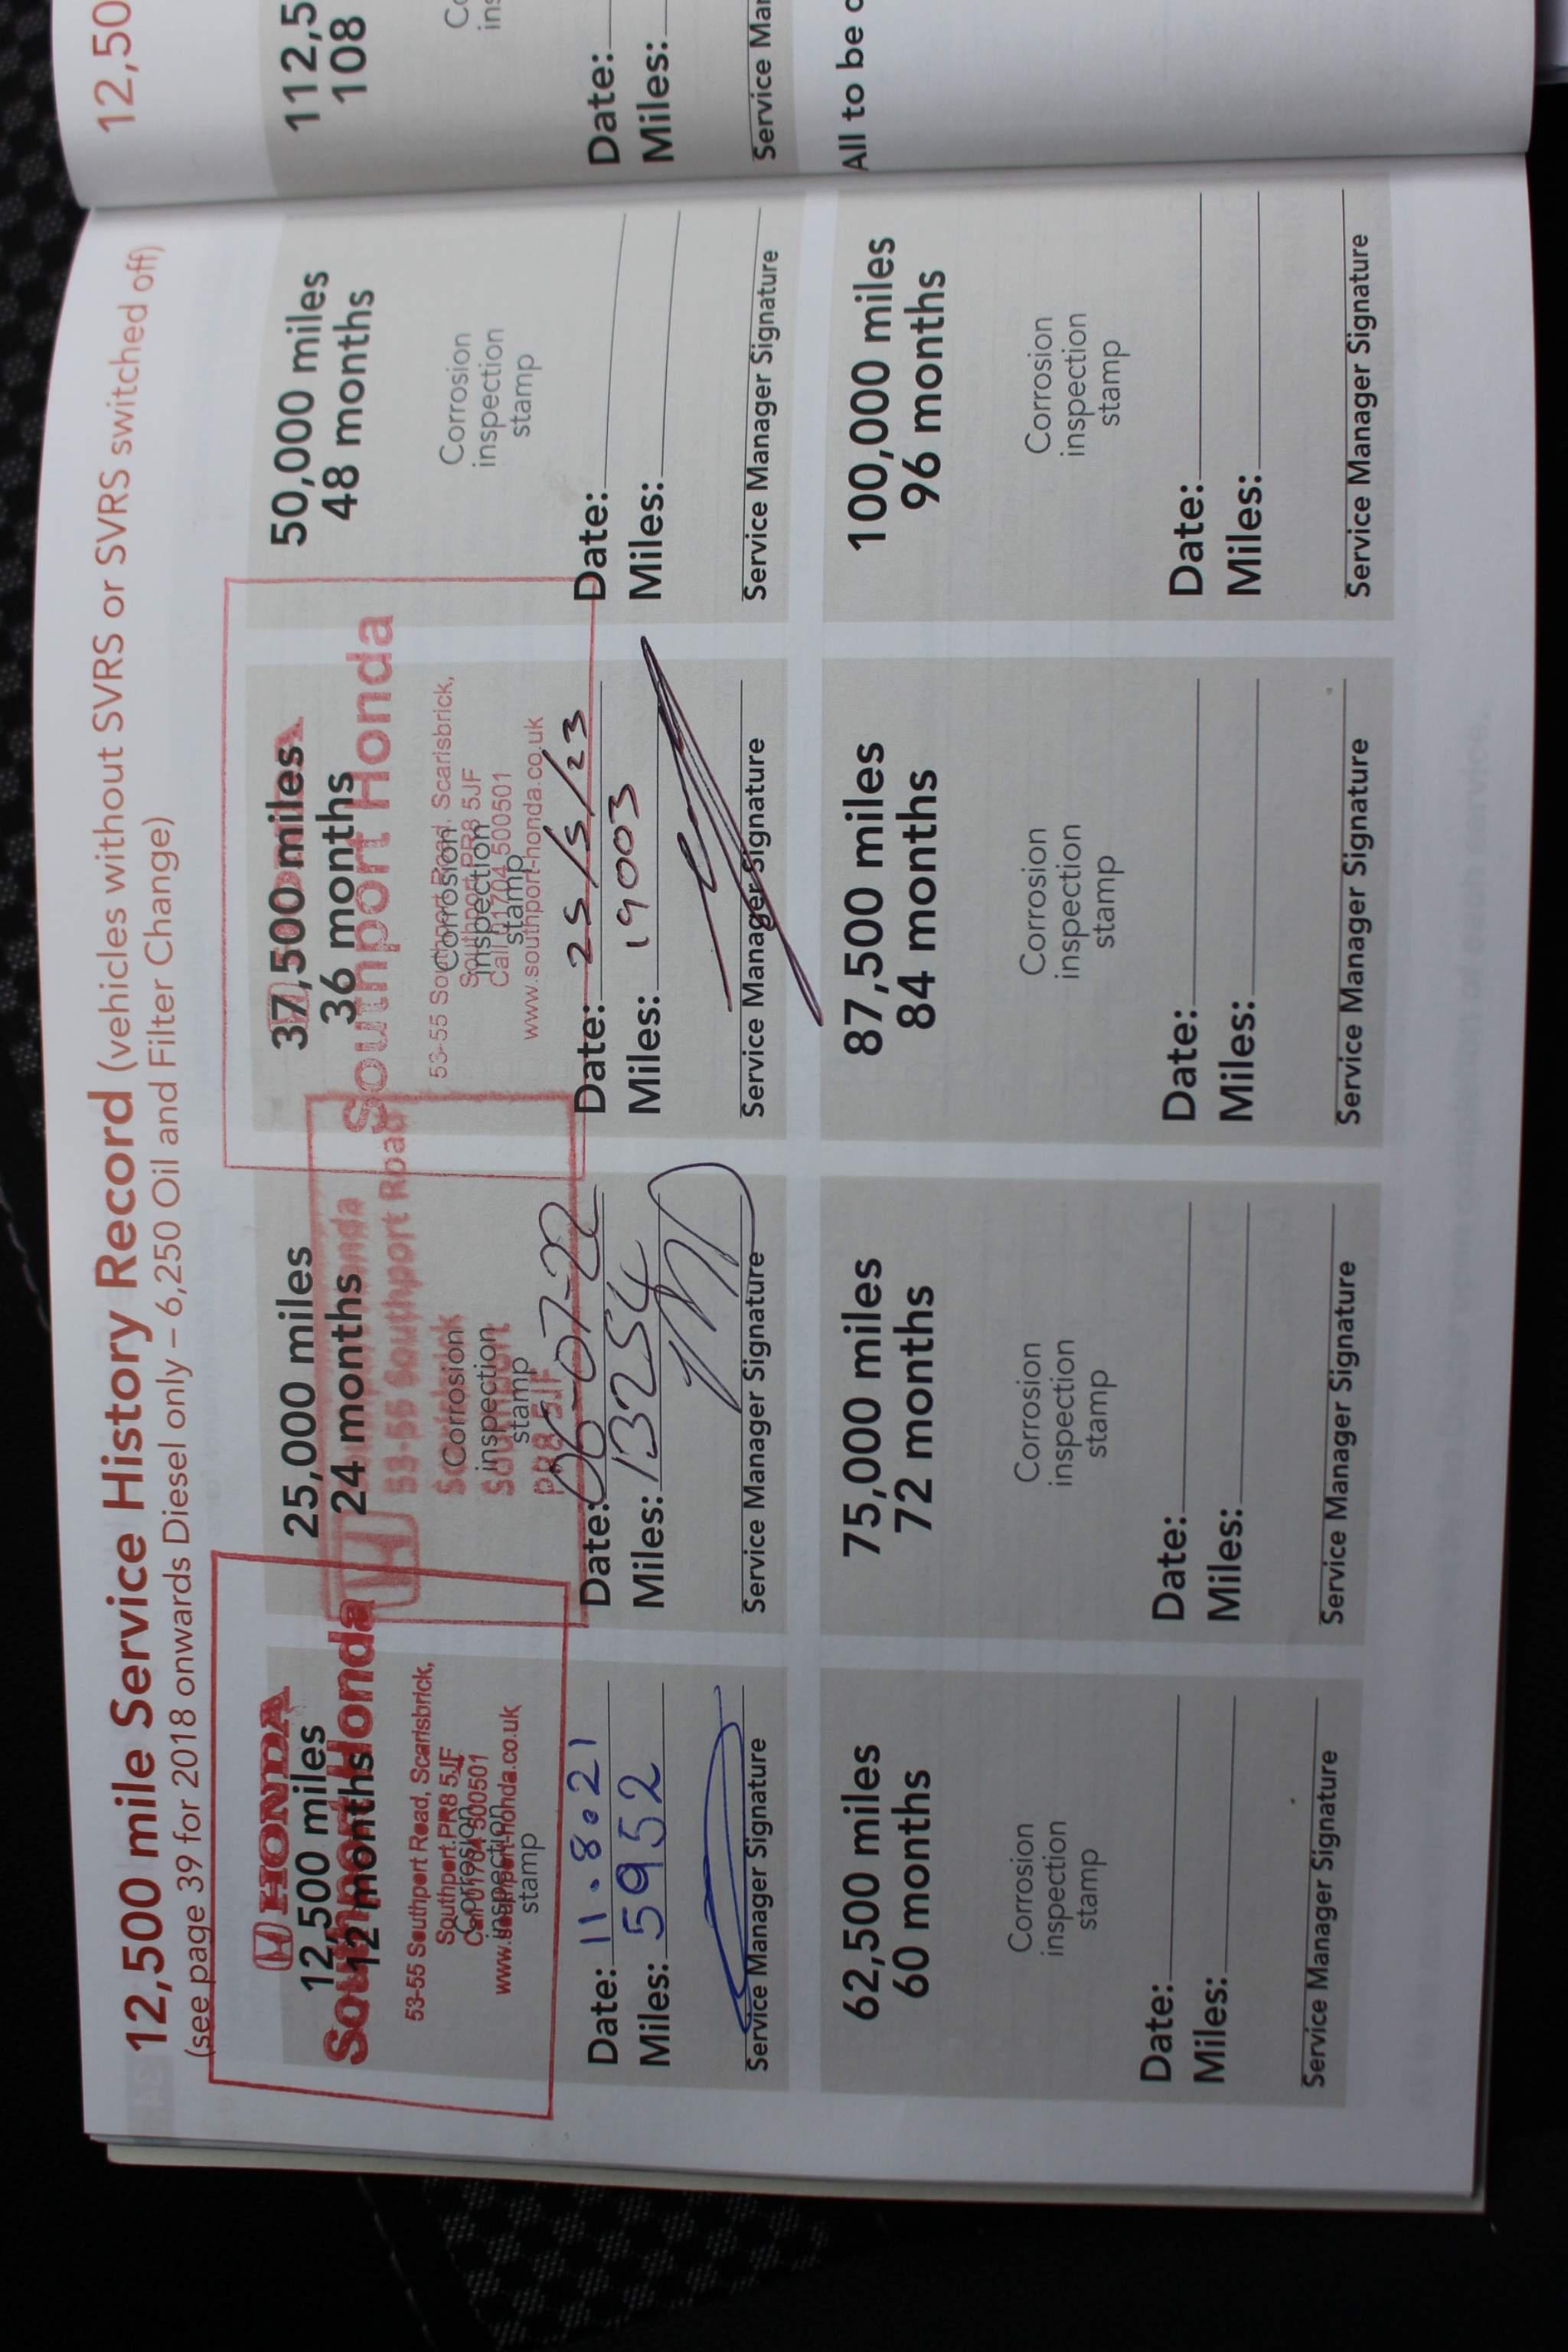 12,500 mile Service History Record (vehicles without SVRS or SVRS switched off)
(see page 39 for 2018 onwards Diesel only – 6,250 Oil and Filter Change)
HONDA
12,500 miles
12 months
Southport Honda
53-55 Southport Road, Scarisbrick,
Southport.PR8 5JF
Call 01704 500501
www.southport-honda.co.uk
Corrosion
inspection
stamp
Date: 11.8.21
Miles: 5952
Service Manager Signature
25,000 miles
24 months
53-55 Southport Road
Scarisbrick
Southport
PR8 5JF
Corrosion
inspection
stamp
Date: 06-07-22
Miles: 13254
Service Manager Signature
37,500 miles
36 months
Southport Honda
53-55 Southport Road, Scarisbrick,
Southport.PR8 5JF
Call 01704 500501
www.southport-honda.co.uk
Corrosion
inspection
stamp
Date: 25/5/23
Miles: 19003
Service Manager Signature
50,000 miles
48 months
Corrosion
inspection
stamp
Date:
Miles:
Service Manager Signature
62,500 miles
60 months
Corrosion
inspection
stamp
Date:
Miles:
Service Manager Signature
75,000 miles
72 months
Corrosion
inspection
stamp
Date:
Miles:
Service Manager Signature
87,500 miles
84 months
Corrosion
inspection
stamp
Date:
Miles:
Service Manager Signature
100,000 miles
96 months
Corrosion
inspection
stamp
Date:
Miles:
Service Manager Signature
12,50
112,5
108
Co
ins
Date:
Miles:
Service Mar
All to be c